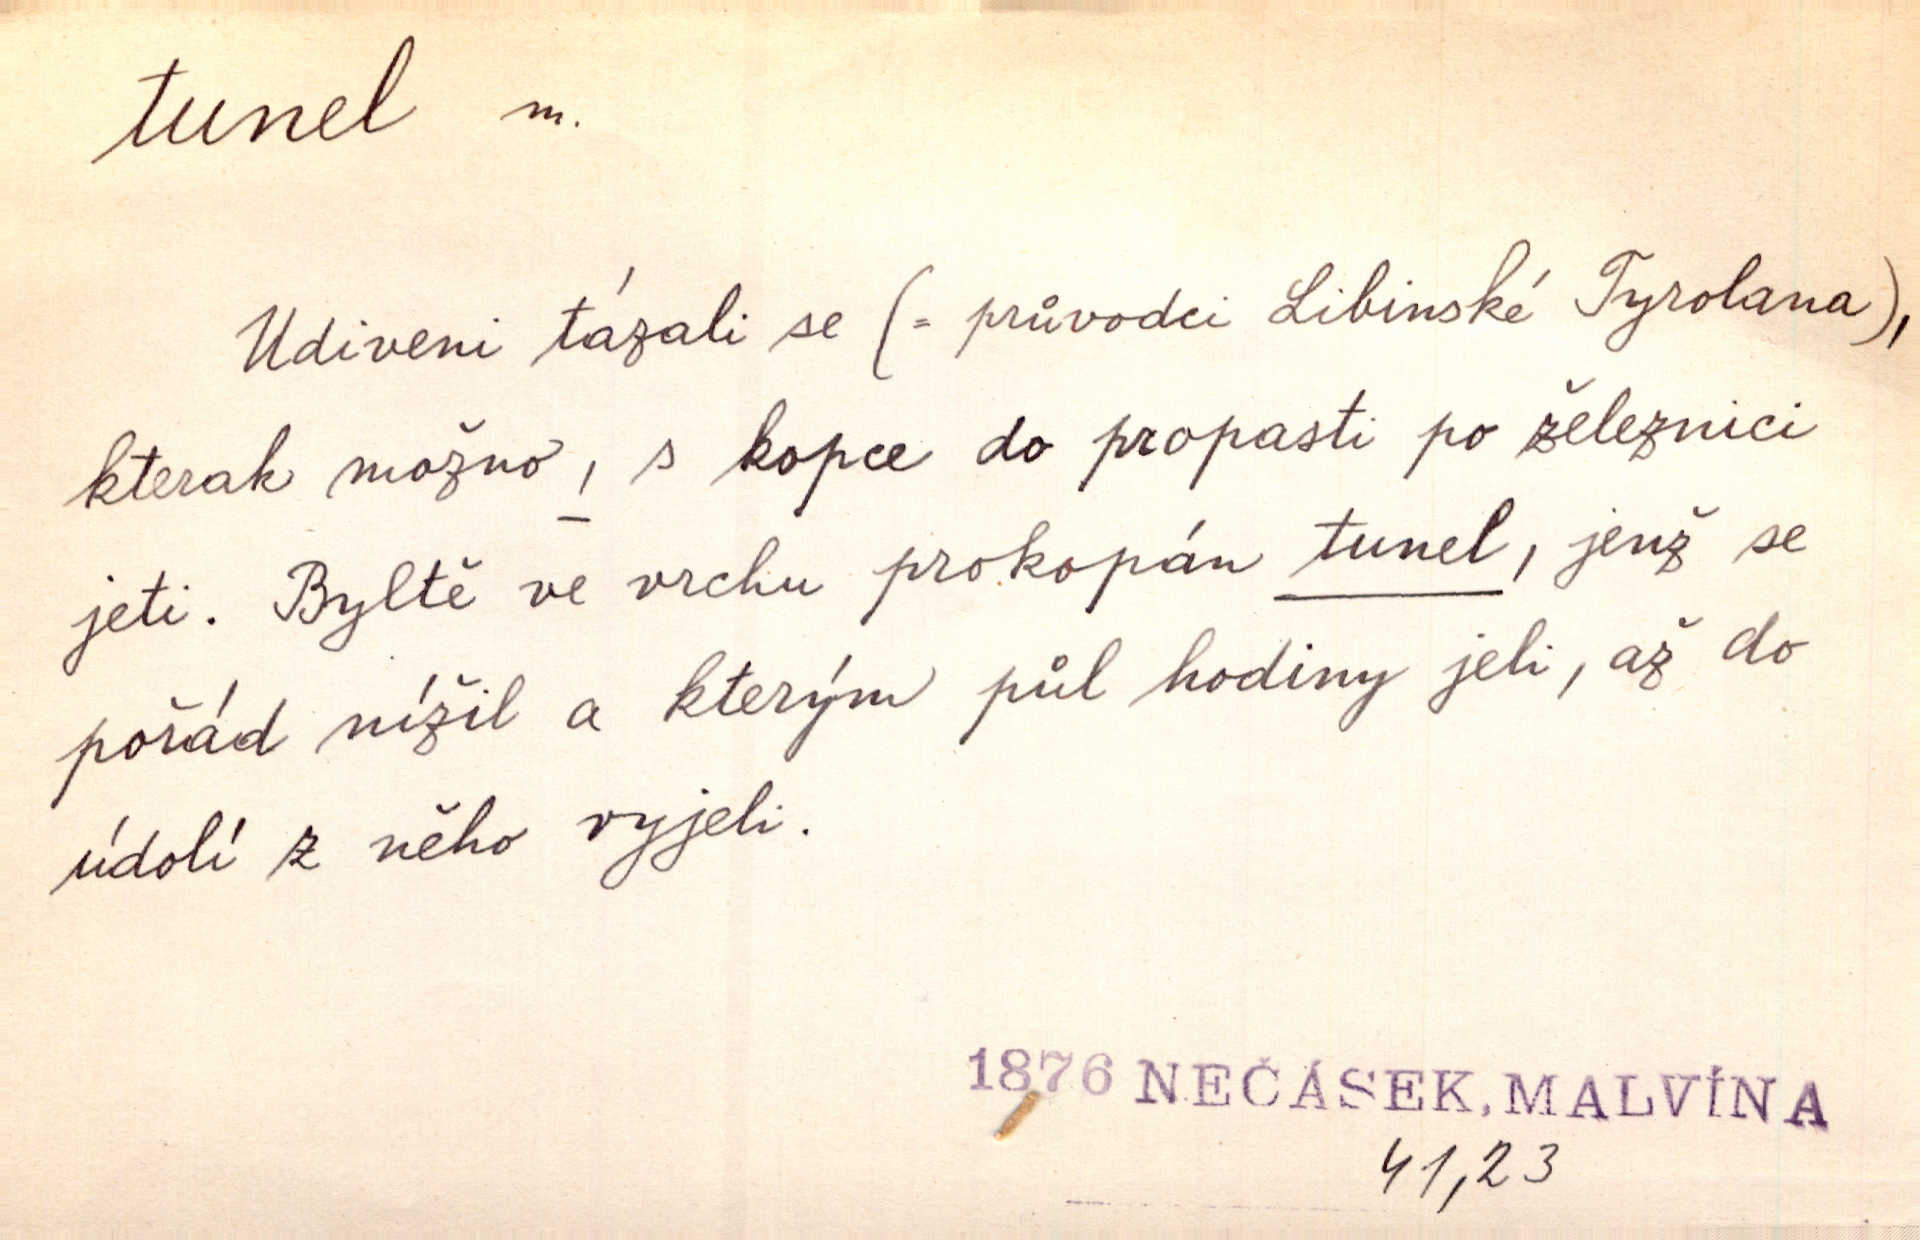 tunel m.
Udiveni tázali se (= průvodci Libinské Tyrolana),
kterak možno, s kopce do propasti po železnici
jeti. Byltě ve vrchu prokopán tunel, jenž se
pořád nížil a kterým půl hodiny jeli, až do
údolí z něho vyjeli.
1876 NEČÁSEK, MALVÍNA
41,23